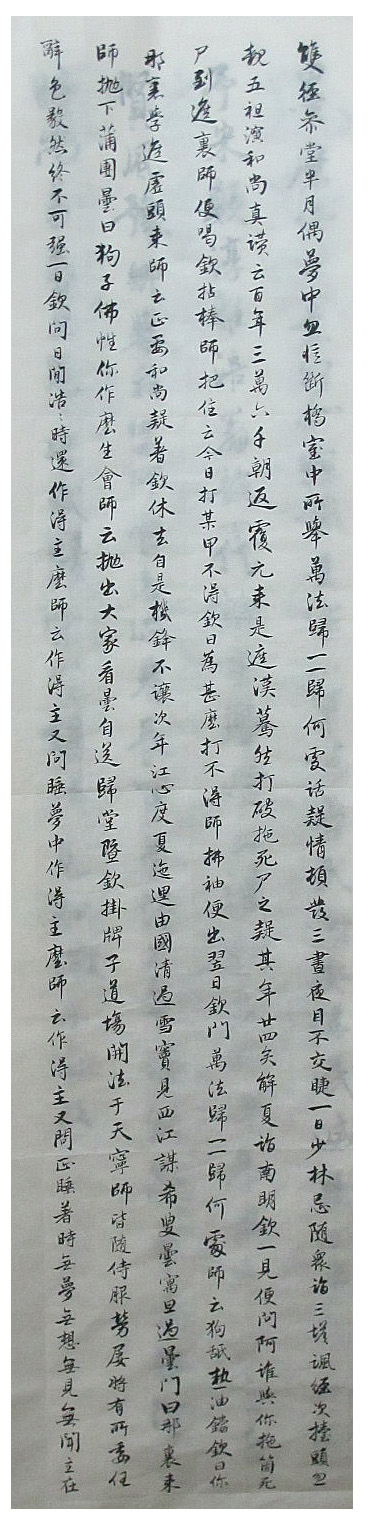 雙徑參堂半月偶夢中忽憶斷橋室中所舉萬法歸一一歸何處話疑情頓發三晝夜目不交睫一日少林忌隨衆詣三塔諷經次擡頭忽
覩五祖演和尚真讚云百年三萬六千朝返覆元來是遮漢驀然打破拖死尸之疑其年廿四矣解夏詣南明欽一見便問阿誰與你拖箇死
尸到遮裏師便喝欽拈棒師把住云今日打某甲不得欽曰為甚麼打不得師拂袖便出翌日欽問萬法歸一一歸何處師云狗舐熱油鐺欽曰你
那裏學遮虛頭來師云正要和尚疑著欽休去自是機鋒不讓次年江心度夏迤邐由國清過雪竇見西江謀希叟曇寓旦過曇問曰那裏來
師拋下蒲團曇曰狗子佛性你作麼生會師云拋出大家看曇自送歸堂暨欽掛牌于道場開法于天寧師皆隨侍服勞屢將有所委任
辭色毅然終不可强一日欽問日間浩浩時還作得主麼師云作得主又問睡夢中作得主麼師云作得主又問正睡著時無夢無想無見無聞主在